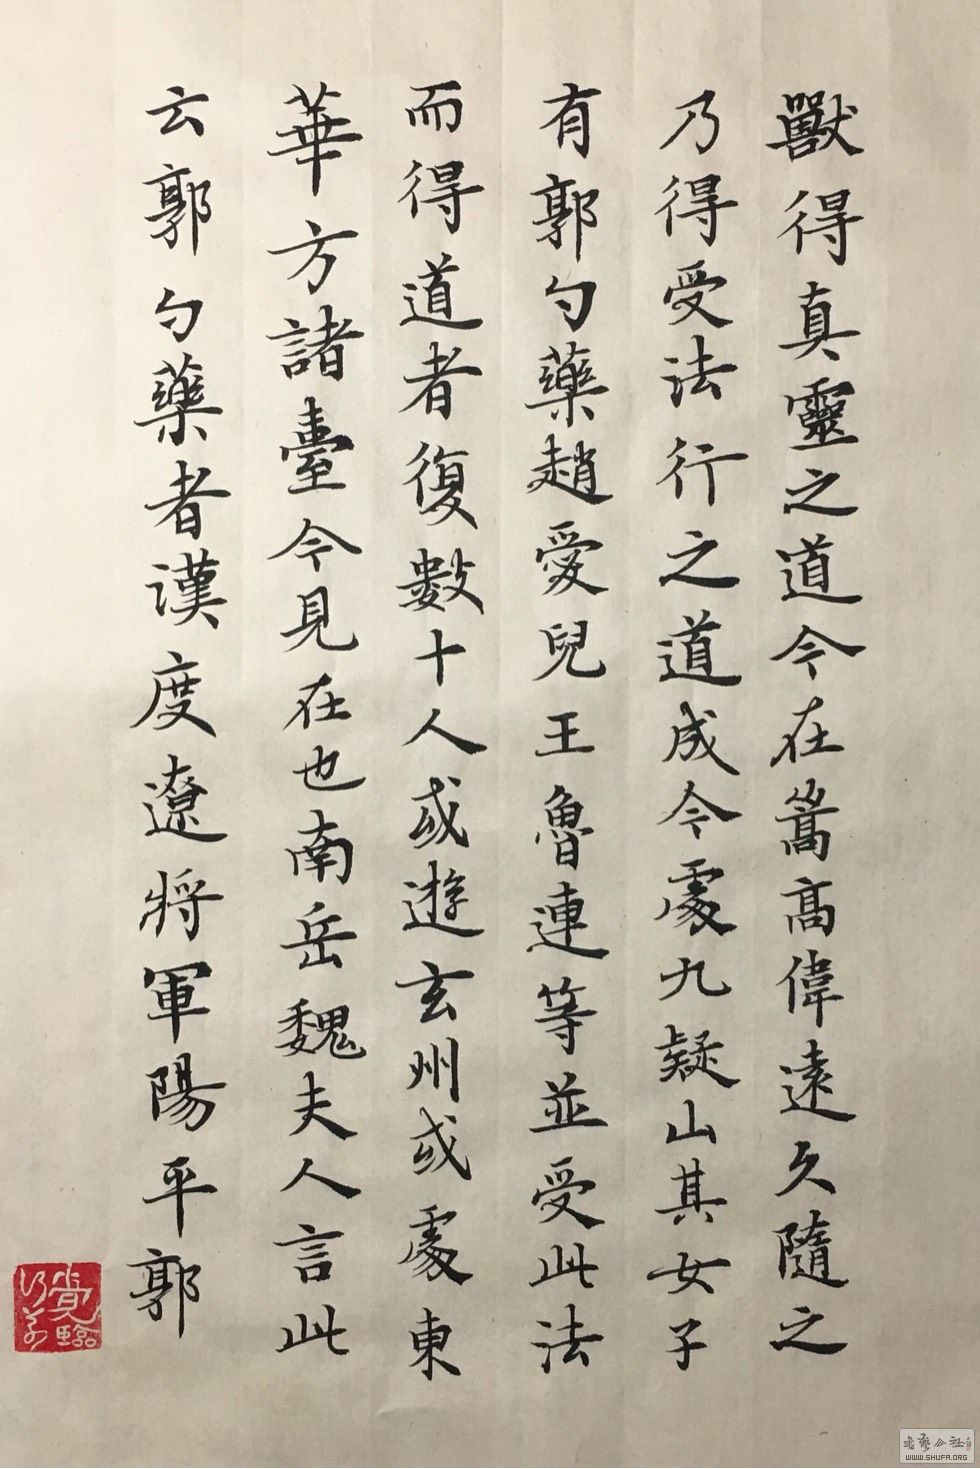 獸得真靈之道今在嵩高偉遠久隨之
乃得受法行之道成今處九疑山其女子
有郭勺藥趙愛兒王魯連等並受此法
而得道者復數十人或遊玄州或處東
華方諸臺今見在也南岳魏夫人言此
云郭勺藥者漢度遼將軍陽平郭
書藝公社
WWW.SHUFA.ORG